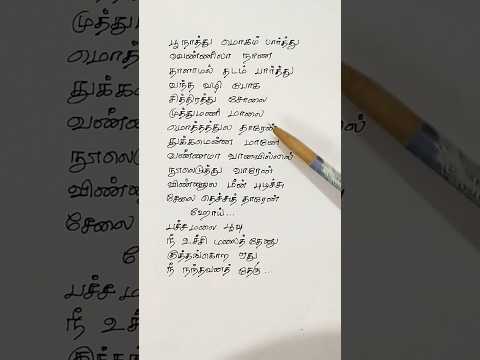 பூ நாத்து மொகம் பார்த்து
வெண்ணிலா நாண
தாளாமல் தடம் பார்த்து
வந்த வழி போக
சித்திரத்து சோலை
முத்துமணி மாலை
மொத்தத்துல தாரேன்
துக்கமென்ன மானே
வண்ணமா வானவில்லில்
நூலெடுத்து வாரேன்
விண்ணுல மீன் புடிச்சு
சேலை தெச்சுத் தாரேன்
ஹோய்...
பச்சமலை பூவு
நீ உச்சி மலைத் தேனு
குத்தங்கொற ஏது
நீ நந்தவனத் தேரு...